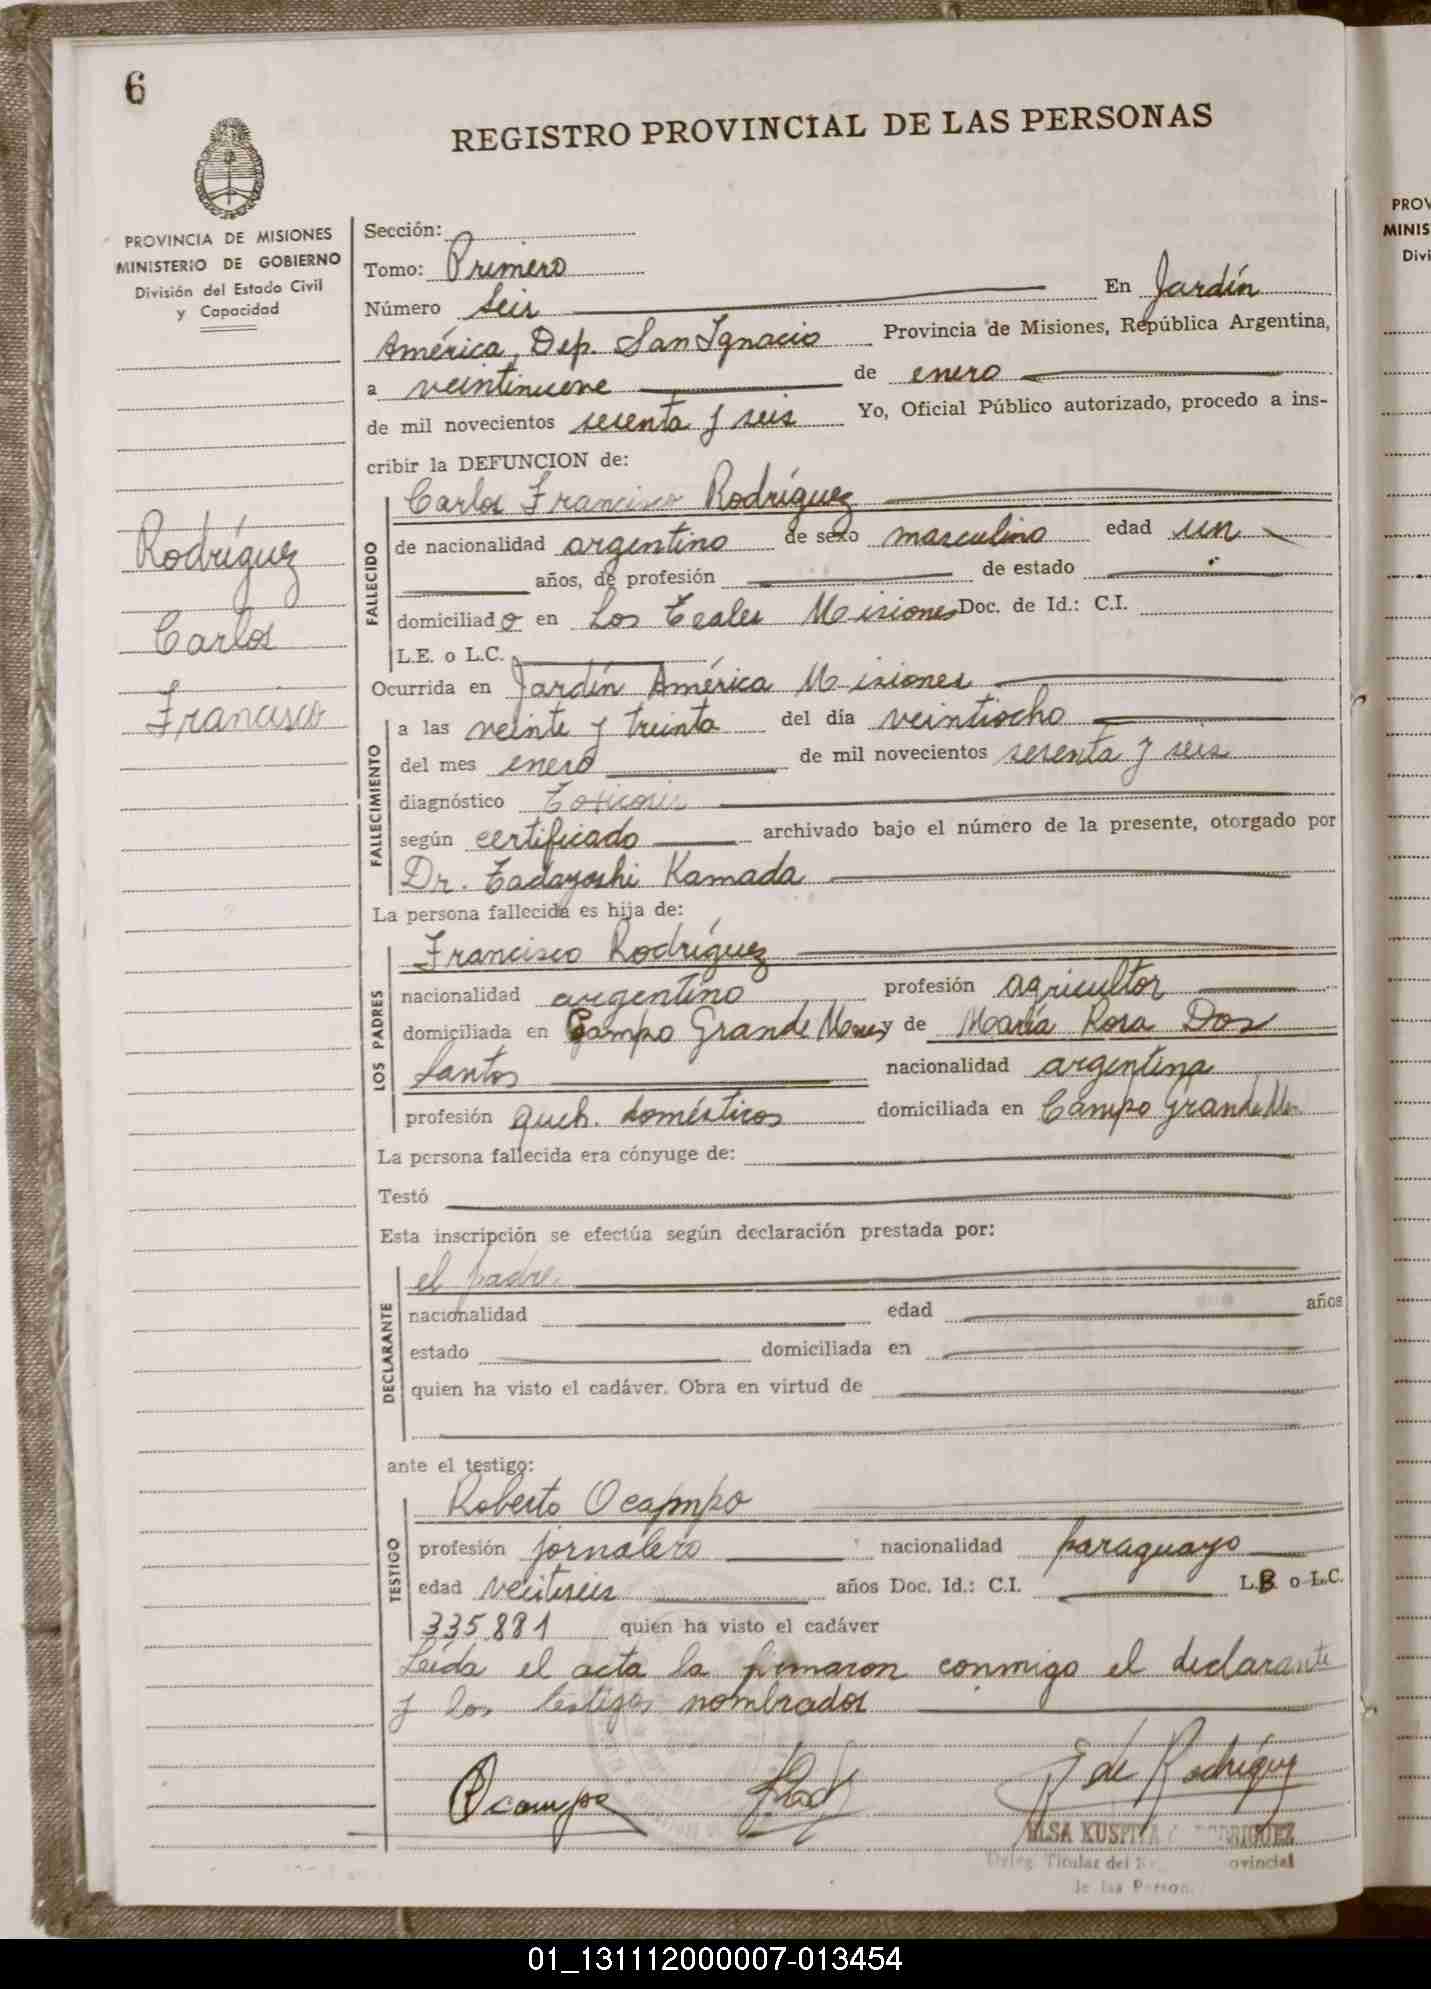 6
REGISTRO PROVINCIAL DE LAS PERSONAS
PROVINCIA DE MISIONES
MINISTERIO DE GOBIERNO
División del Estado Civil
y Capacidad
Rodríguez
Carlos
Francisco
Sección:
Tomo: Primero
Número seis En Jardín
América, Dep. San Ignacio Provincia de Misiones, República Argentina,
a veintinueve de enero
de mil novecientos sesenta y seis Yo, Oficial Público autorizado, procedo a ins-
cribir la DEFUNCION de:
FALLECIDO
Carlos Francisco Rodríguez
de nacionalidad argentino de sexo masculino edad un
años, de profesión de estado
domiciliado en Los Teales Misiones Doc. de Id.: C.I.
L.E. o L.C.
Ocurrida en Jardín América Misiones
FALLECIMIENTO
a las veinte y treinta del día veintiocho
del mes enero de mil novecientos sesenta y seis
diagnóstico Toxicosis
según certificado archivado bajo el número de la presente, otorgado por
Dr. Tadayoshi Kamada
La persona fallecida es hija de:
LOS PADRES
Francisco Rodríguez
nacionalidad argentino profesión agricultor
domiciliada en Campo Grande y de María Rosa Dos
Santos nacionalidad argentina
profesión queh. domésticos domiciliada en Campo Grande
La persona fallecida era cónyuge de:
Testó
Esta inscripción se efectúa según declaración prestada por:
DECLARANTE
el padre.
nacionalidad edad años
estado domiciliada en
quien ha visto el cadáver. Obra en virtud de
ante el testigo:
TESTIGO
Roberto Ocampo
profesión jornalero nacionalidad paraguayo
edad veitiseis años Doc. Id.: C.I. L.E. o L.C.
335.881 quien ha visto el cadáver
Leída el acta la firmaron conmigo el declarante
y los testigos nombrados
Ocampo
E de Rodríguez
ELSA KUSPITA RODRIGUEZ
Titular del ovincial
de las Person
PROV
MINIS
Divi
01_131112000007-013454